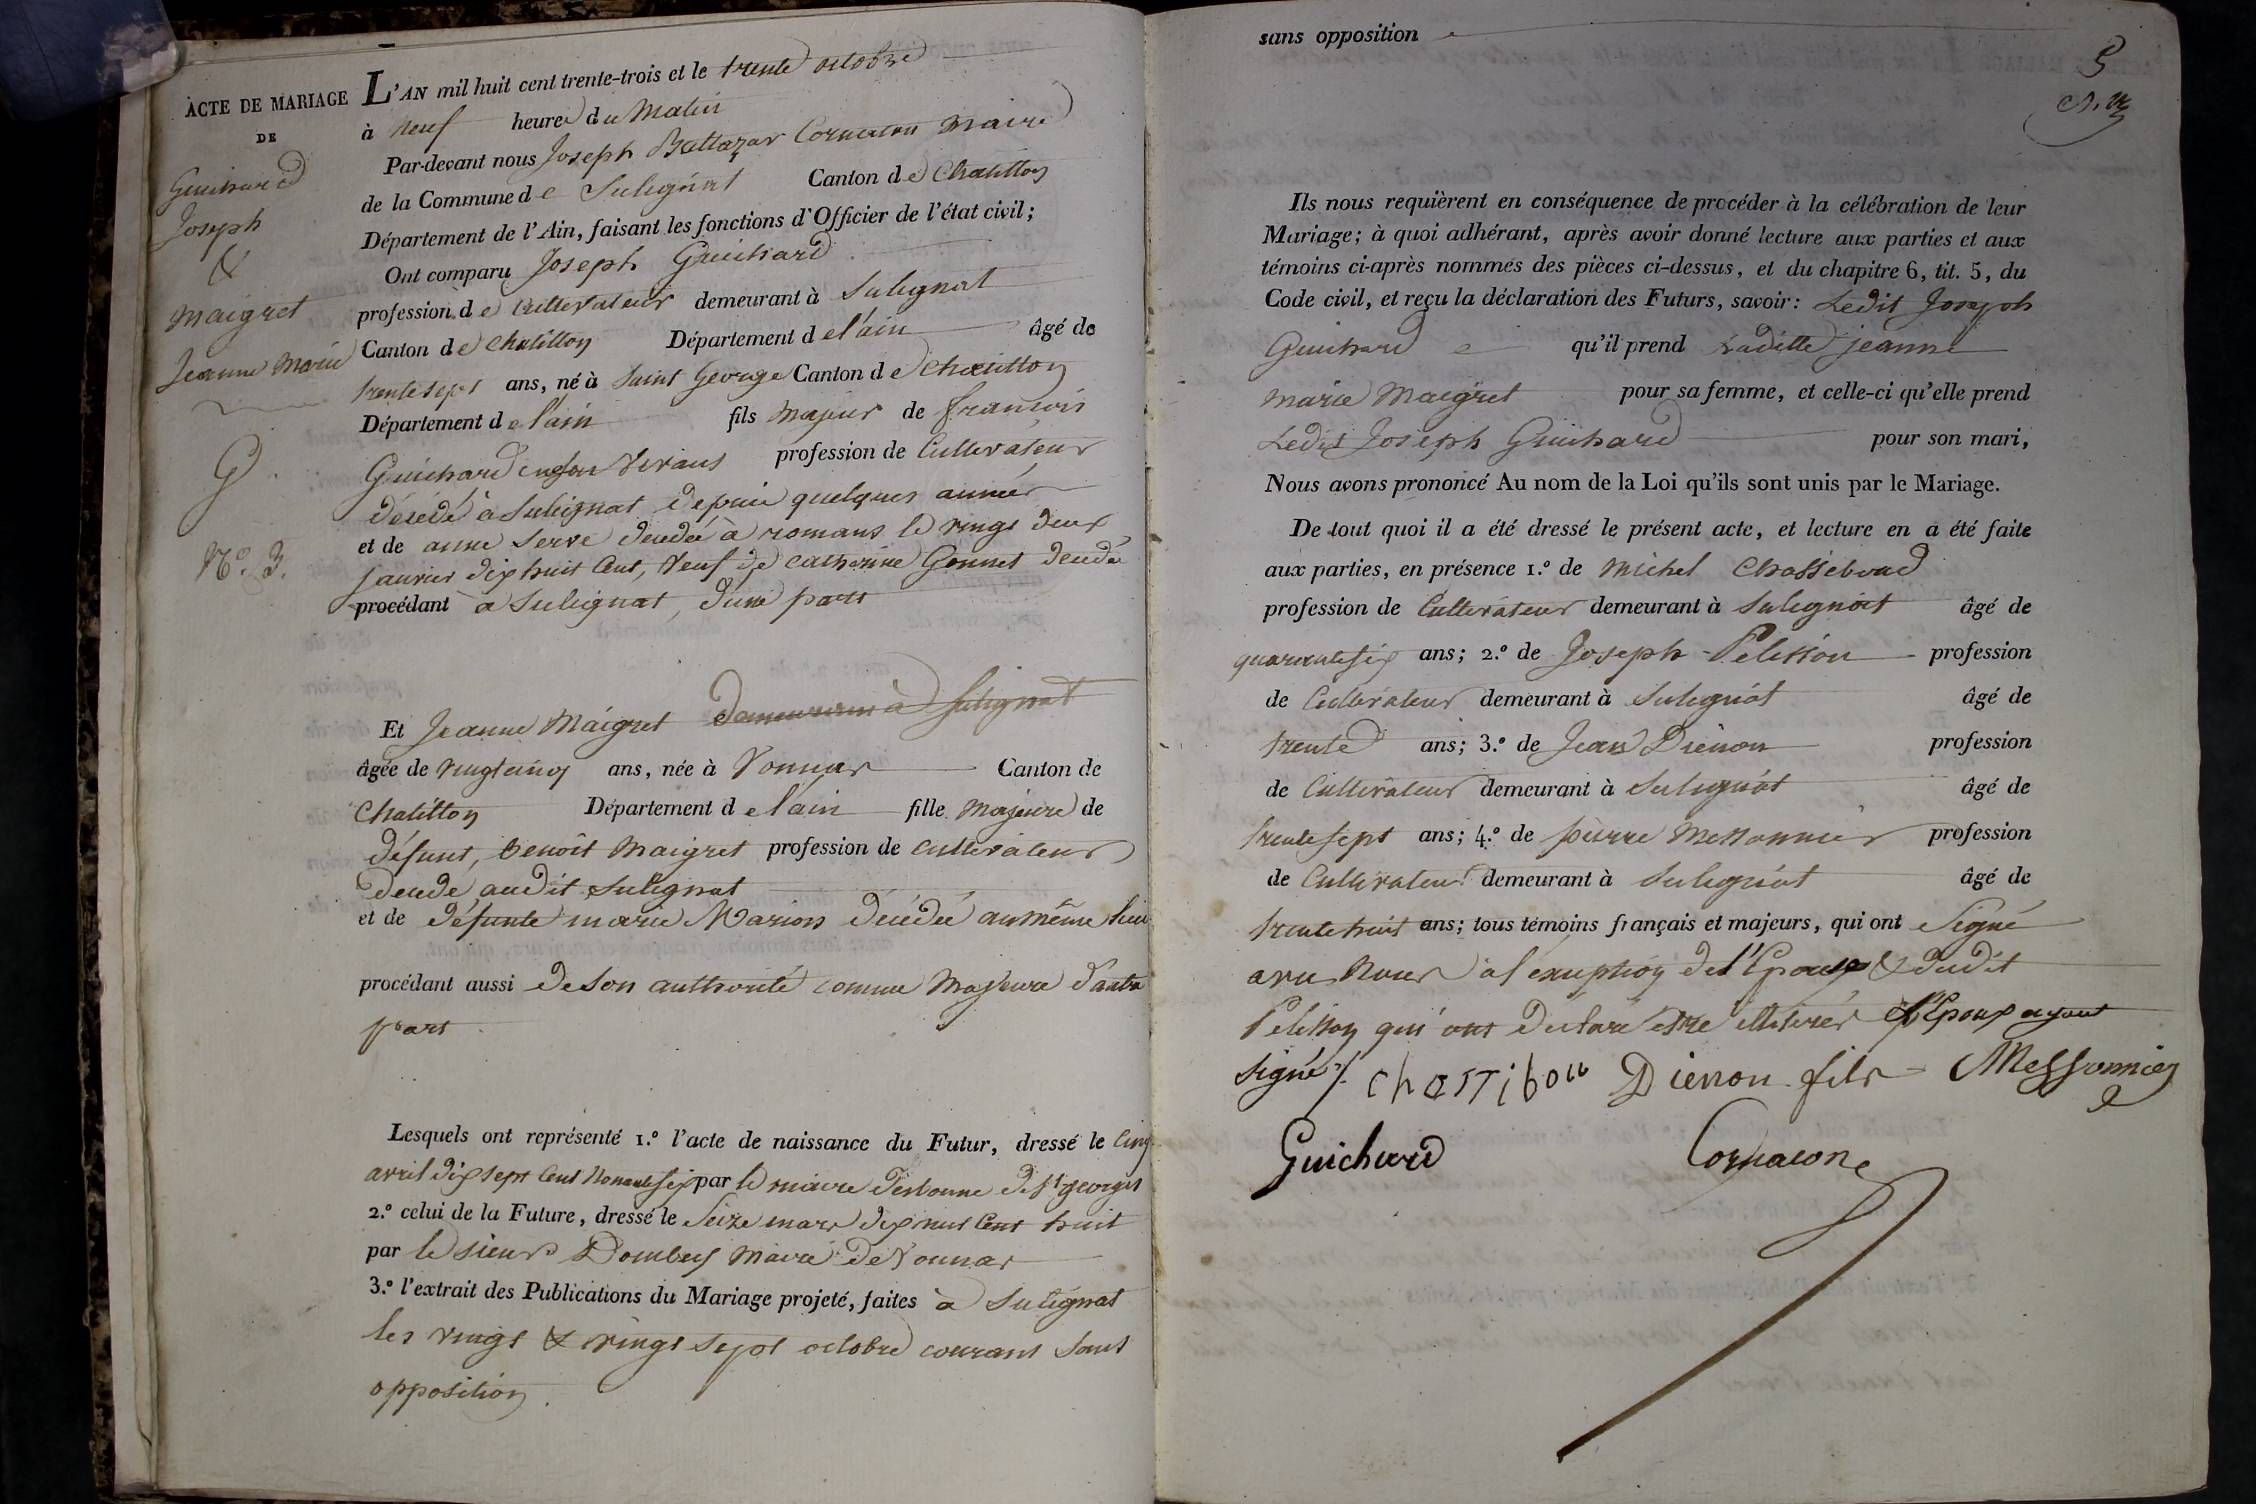 ACTE DE MARIAGE
DE
Guichard
Joseph
&
Maigret
Jeanne Marie
G.
N.o 3.
L'AN mil huit cent trente-trois et le trente octobre
à neuf heures du Matin
Par-devant nous Joseph Baltazar Cornaton Maire
de la Commune de Sulignat Canton de Chatillon
Département de l'Ain, faisant les fonctions d'Officier de l'état civil;
Ont comparu Joseph Guichard
profession de Cultivateur demeurant à Sulignat
Canton de Chatillon Département de l'ain âgé de
trente sept ans, né à Saint George Canton de Chatillon
Département de l'ain fils majeur de francois
Guichard vivant profession de Cultivateur
décédé à Sulignat depuis quelques années
et de anne Serve décédée à romans le vingt deux
janvier dix huit Cent, Veuf de Catherine Gonnet décédée
procédant a Sulignat, d'une part
Et Jeanne Maigret demeurant à Sulignat
âgée de vingt cinq ans, née à Vonnas Canton de
Chatillon Département de l'ain fille Majeure de
défunt, benoît Maigret profession de Cultivateur
décédé audit Sulignat
et de défunte marie Marion décédée au même lieu
procédant aussi de son authorité comme Majeure d'autre
part
Lesquels ont représenté 1.o l'acte de naissance du Futur, dressé le Cinq
avril dix sept Cent Nonante six par le maire de St georges
2.o celui de la Future, dressé le Seize mars dix huit Cent huit
par le sieur Dombey Maire de Vonnas
3.o l'extrait des Publications du Mariage projeté, faites à Sulignat
les vingt & vingt sept octobre courant sans
opposition.
sans opposition
5
Ils nous requièrent en conséquence de procéder à la célébration de leur
Mariage; à quoi adhérant, après avoir donné lecture aux parties et aux
témoins ci-après nommés des pièces ci-dessus, et du chapitre 6, tit. 5, du
Code civil, et reçu la déclaration des Futurs, savoir: Ledit Joseph
Guichard qu'il prend Laditte jeanne
marie Maigret pour sa femme, et celle-ci qu'elle prend
Ledit Joseph Guichard pour son mari,
Nous avons prononcé Au nom de la Loi qu'ils sont unis par le Mariage.
De tout quoi il a été dressé le présent acte, et lecture en a été faite
aux parties, en présence 1.o de Michel Chassiboud
profession de Cultivateur demeurant à Sulignat âgé de
quarante six ans; 2.o de Joseph Pelisson profession
de Cultivateur demeurant à Sulignat âgé de
trente ans; 3.o de Jean Dienon profession
de Cultivateur demeurant à Sulignat âgé de
trente sept ans; 4.o de pierre Messonnier profession
de Cultivateur demeurant à Sulignat âgé de
trente huit ans; tous témoins français et majeurs, qui ont Signé
avec Nous à l'exeuption de l'Epouse & dudit
Pelisson qui ont déclaré être illiterés l'Epoux ayant
signé ./. Chassibou Dienon fils Messonnier
Guichard Cornaton